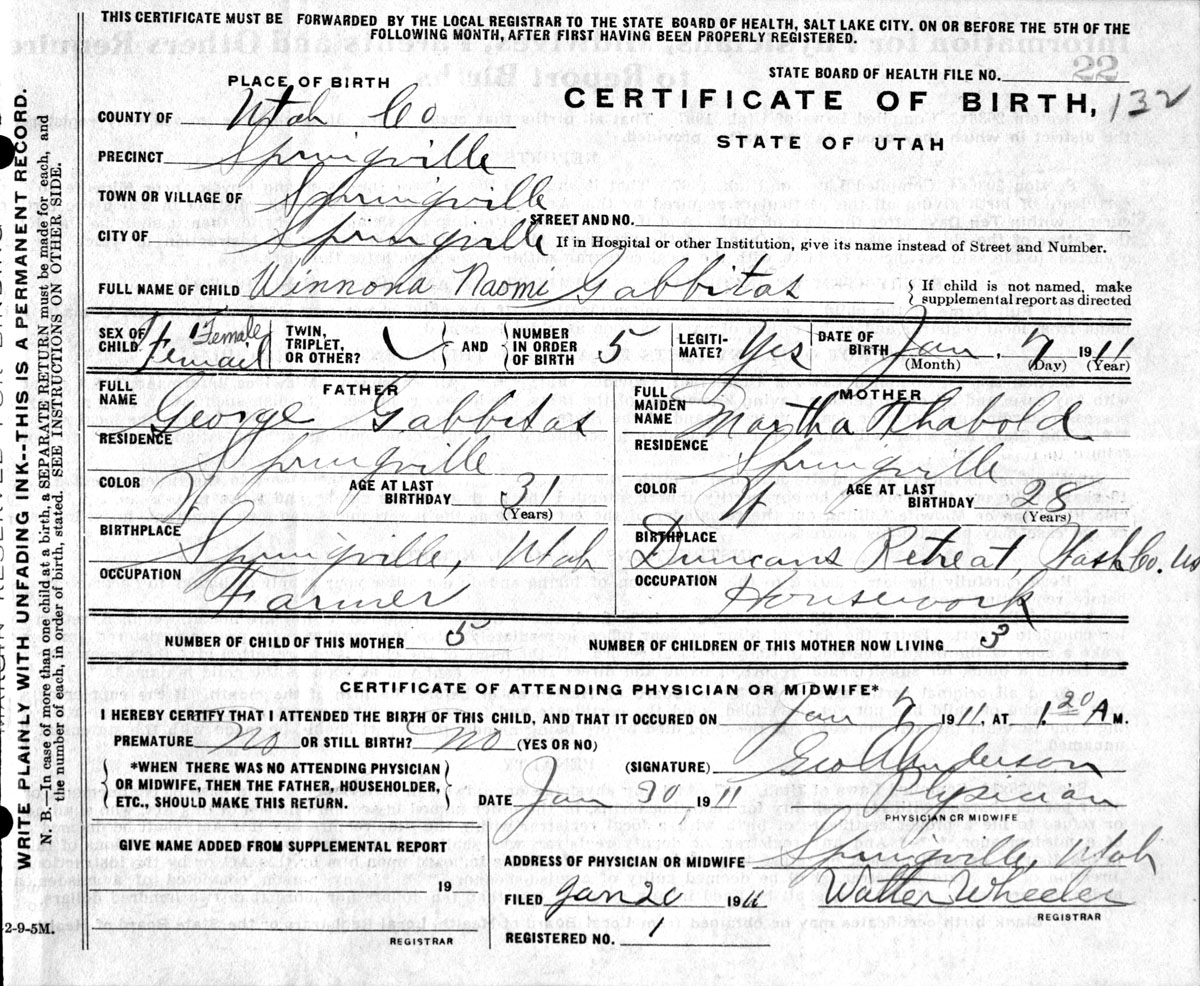 THIS CERTIFICATE MUST BE FORWARDED BY THE LOCAL REGISTRAR TO THE STATE BOARD OF HEALTH, SALT LAKE CITY, ON OR BEFORE THE 5TH OF THE
FOLLOWING MONTH, AFTER FIRST HAVING BEEN PROPERLY REGISTERED.
22
STATE BOARD OF HEALTH FILE NO.
PLACE OF BIRTH
CERTIFICATE OF BIRTH, 132
STATE OF UTAH
COUNTY OF Utah Co
PRECINCT Springville
TOWN OR VILLAGE OF Springville
STREET AND NO.
CITY OF Springville If in Hospital or other Institution, give its name instead of Street and Number.
FULL NAME OF CHILD Winnona Naomi Gabbitas { If child is not named, make
supplemental report as directed
SEX OF CHILD Female Femail TWIN, TRIPLET, OR OTHER? AND NUMBER IN ORDER OF BIRTH 5 LEGITI-MATE? Yes DATE OF BIRTH Jan. 7 1911
(Month) (Day) (Year)
FATHER
FULL NAME George Gabbitas
RESIDENCE Springville
COLOR AGE AT LAST BIRTHDAY 31
(Years)
BIRTHPLACE Springville, Utah
OCCUPATION Farmer
MOTHER
FULL MAIDEN NAME Martha Thabold
RESIDENCE Springville
COLOR W AGE AT LAST BIRTHDAY 28
(Years)
BIRTHPLACE Duncans Retreat, Wash Co. Ut
OCCUPATION Housework
NUMBER OF CHILD OF THIS MOTHER 5 NUMBER OF CHILDREN OF THIS MOTHER NOW LIVING 3
CERTIFICATE OF ATTENDING PHYSICIAN OR MIDWIFE*
I HEREBY CERTIFY THAT I ATTENDED THE BIRTH OF THIS CHILD, AND THAT IT OCCURED ON Jan 7 1911, AT 1.20 A M.
PREMATURE No OR STILL BIRTH? No (YES OR NO)
*WHEN THERE WAS NO ATTENDING PHYSICIAN
OR MIDWIFE, THEN THE FATHER, HOUSEHOLDER,
ETC., SHOULD MAKE THIS RETURN.
(SIGNATURE) Geo A Anderson
DATE Jan 20 1911 Physician
PHYSICIAN OR MIDWIFE
GIVE NAME ADDED FROM SUPPLEMENTAL REPORT
19
REGISTRAR
ADDRESS OF PHYSICIAN OR MIDWIFE Springville, Utah
FILED Jan 20 1911 Walter Wheeler
REGISTRAR
REGISTERED NO. 1
2-9-5M.
WRITE PLAINLY WITH UNFADING INK--THIS IS A PERMANENT RECORD.
N. B.—In case of more than one child at a birth, a SEPARATE RETURN must be made for each, and
the number of each, in order of birth, stated. SEE INSTRUCTIONS ON OTHER SIDE.